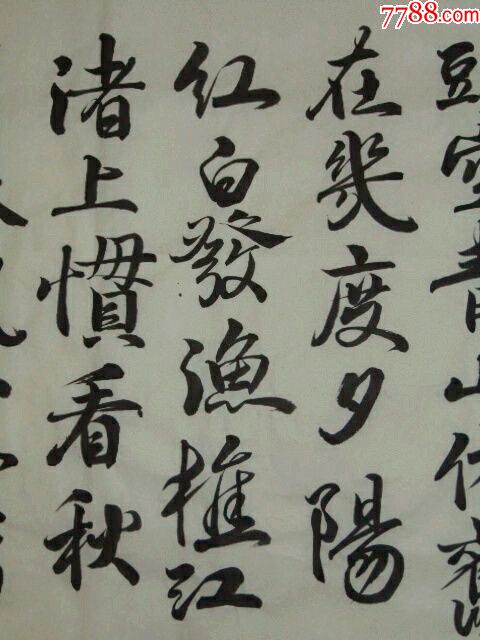 7788.com
空青山依舊
在幾度夕陽
红白發漁樵江
渚上慣看秋